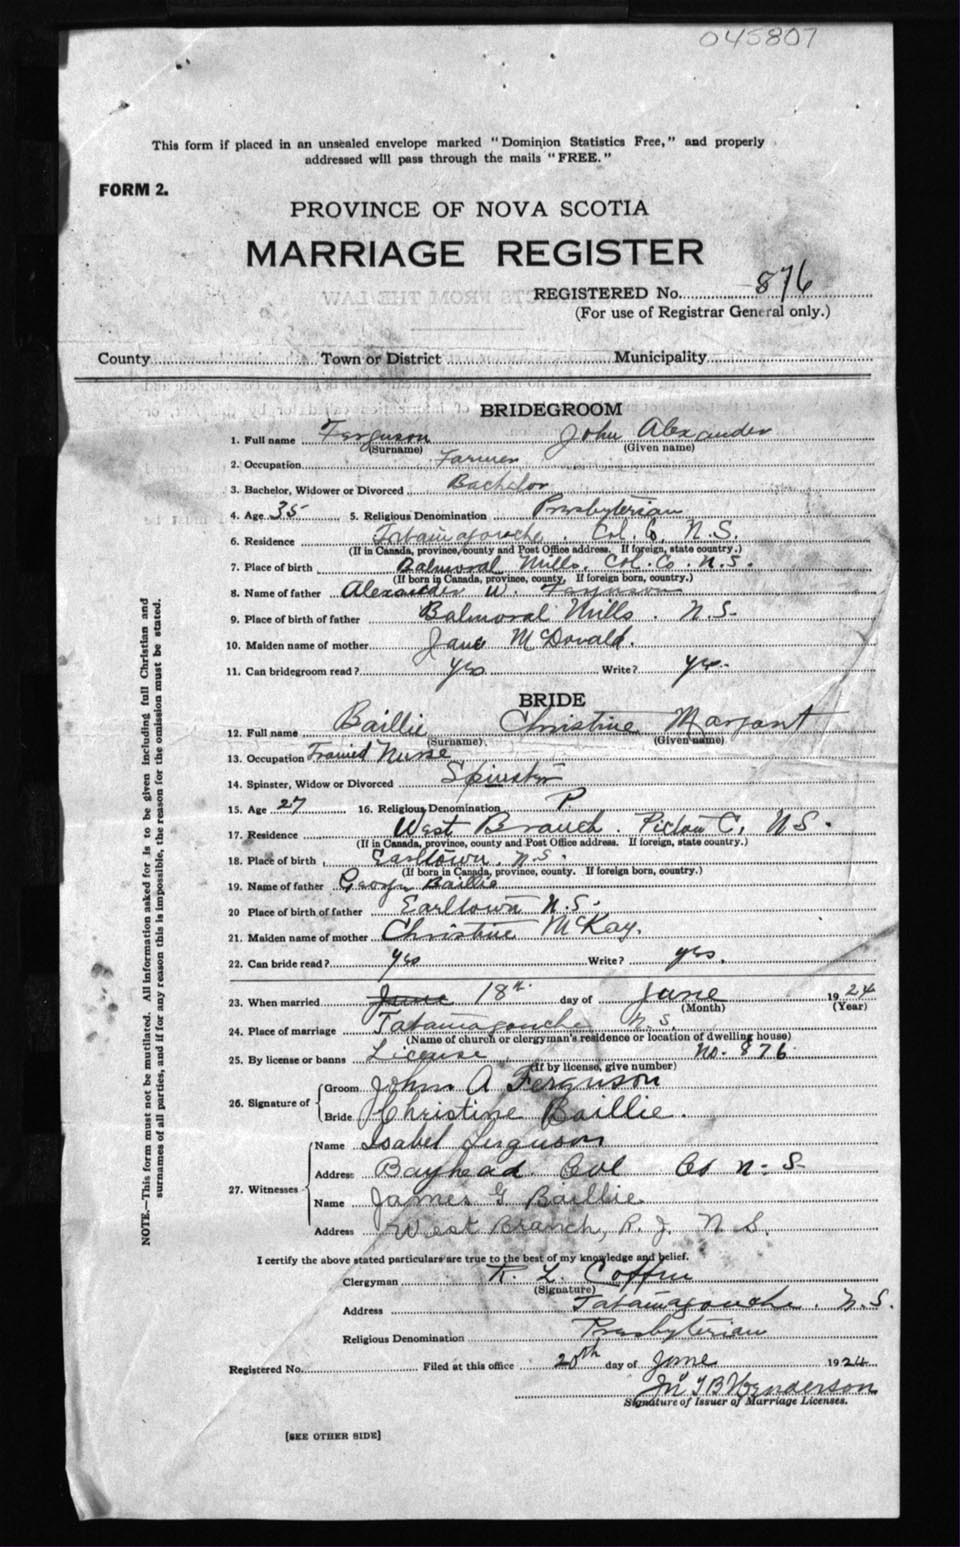 045807
This form if placed in an unsealed envelope marked "Dominion Statistics Free," and properly
addressed will pass through the mails "FREE."
FORM 2.
PROVINCE OF NOVA SCOTIA
MARRIAGE REGISTER
REGISTERED No. 876
(For use of Registrar General only.)
County Town or District Municipality
BRIDEGROOM
1. Full name Ferguson John Alexander
(Surname) (Given name)
2. Occupation Farmer
3. Bachelor, Widower or Divorced Bachelor
4. Age 35 5. Religious Denomination Presbyterian
6. Residence Tatamagouche. Col. Co. N.S.
(If in Canada, province, county and Post Office address. If foreign, state country.)
7. Place of birth Balmoral Mills. Col. Co. N.S.
(If born in Canada, province, county, If foreign born, country.)
8. Name of father Alexander W. Ferguson
9. Place of birth of father Balmoral Mills. N.S.
10. Maiden name of mother Jane McDonald.
11. Can bridegroom read? yes Write? yes.
BRIDE
12. Full name Baillie Christine Margaret
(Surname) (Given name)
13. Occupation Trained Nurse
14. Spinster, Widow or Divorced Spinster
15. Age 27 16. Religious Denomination P.
17. Residence West Branch. Pictou C, N.S.
(If in Canada, province, county and Post Office address. If foreign, state country.)
18. Place of birth Earltown. N.S.
(If born in Canada, province, county. If foreign born, country.)
19. Name of father George Baillie
20 Place of birth of father Earltown N.S.
21. Maiden name of mother Christine McKay.
22. Can bride read? yes Write? yes.
23. When married June 18th day of June 1924
(Month) (Year)
24. Place of marriage Tatamagouche N.S.
(Name of church or clergyman's residence or location of dwelling house)
25. By license or banns License No. 876
(If by license, give number)
26. Signature of Groom John A Ferguson
Bride Christine Baillie.
27. Witnesses Name Isabel Ferguson
Address Bayhead Col Co N.S
Name James G Baillie
Address West Branch, R. J. N.S.
I certify the above stated particulars are true to the best of my knowledge and belief.
Clergyman R. L. Coffin
(Signature)
Address Tatamagouche. N.S.
Religious Denomination Presbyterian
Registered No. Filed at this office 20th day of June 1924
Jno T B Henderson
Signature of Issuer of Marriage Licenses.
[SEE OTHER SIDE]
NOTE.—This form must not be mutilated. All information asked for is to be given including full Christian and
surnames of all parties, and if for any reason this is impossible, the reason for the omission must be stated.